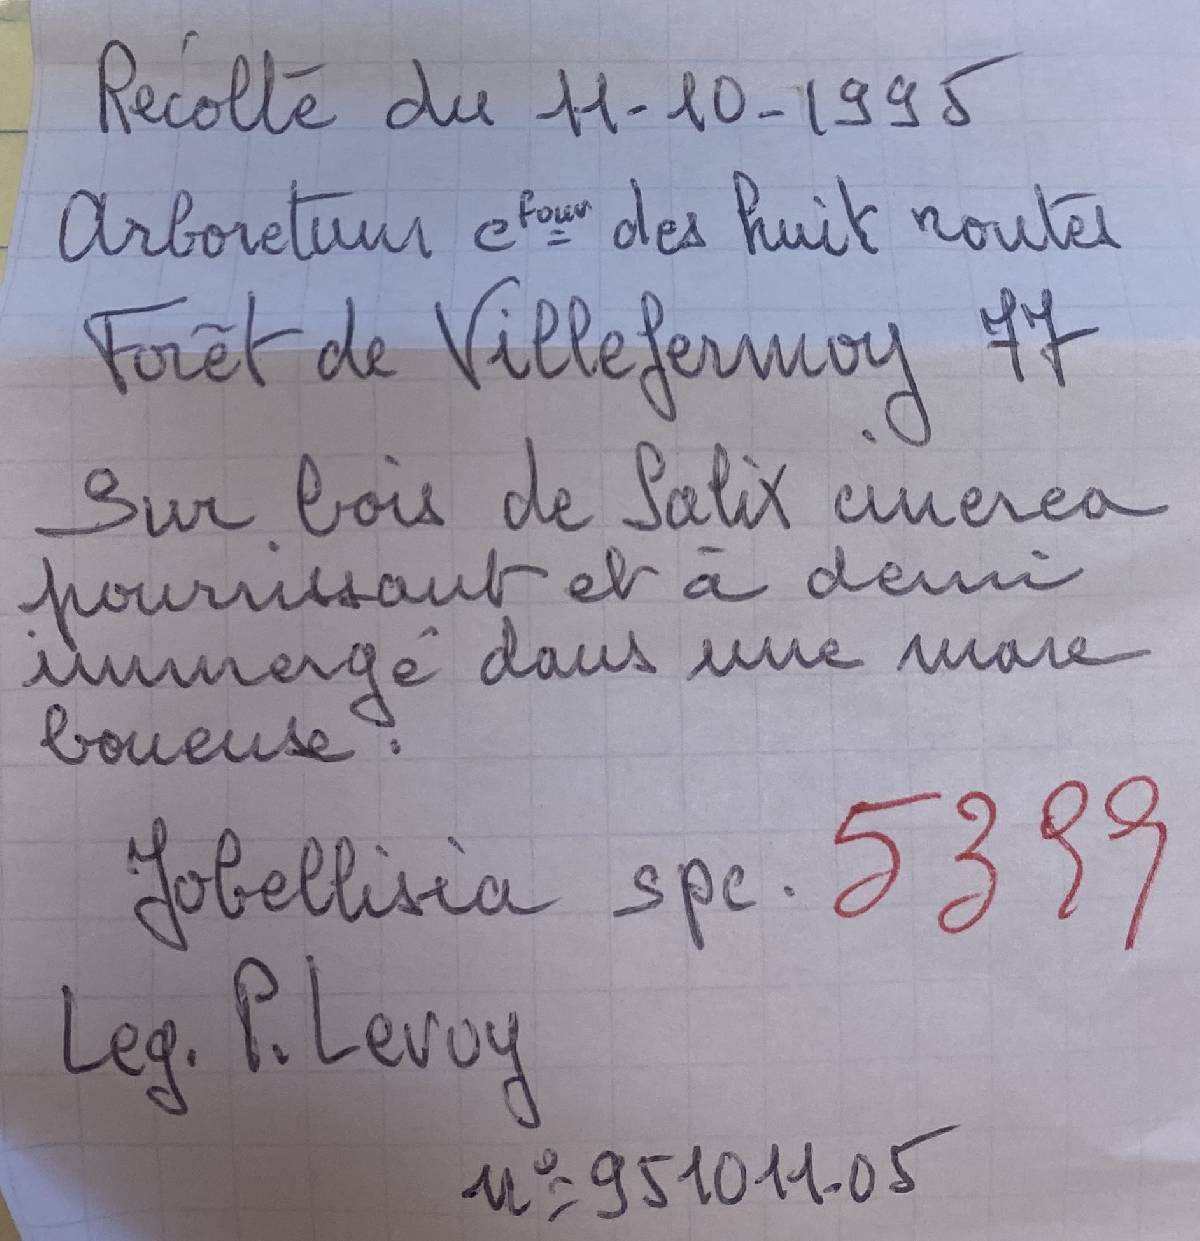 Récolté du 11-10-1995
Arboretum cfour des huit routes
Forêt de Villefermoy 77
Sur bois de Salix cinerea
pourrissant et à demi
immergé dans une mare
boueuse.
Jobellisia spc. 5399
Leg. P. Leroy
n°= 951011.05